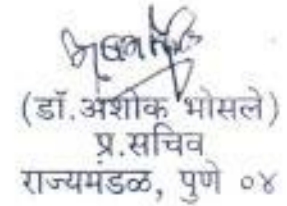 (डॉ.अशोक भोसले)
प्र.सचिव
राज्यमंडळ, पुणे ०४